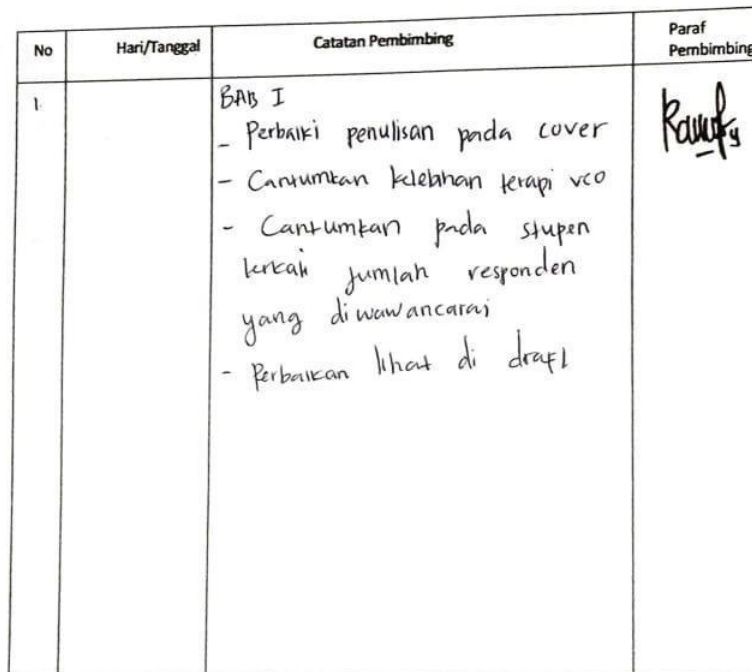 No Hari/Tanggal Catatan Pembimbing Paraf Pembimbing
1. BAB I
- Perbaiki penulisan pada cover
- Cantumkan kelebihan terapi vco
- Cantumkan pada stupen
terkait jumlah responden
yang diwawancarai
- Perbaikan lihat di draft